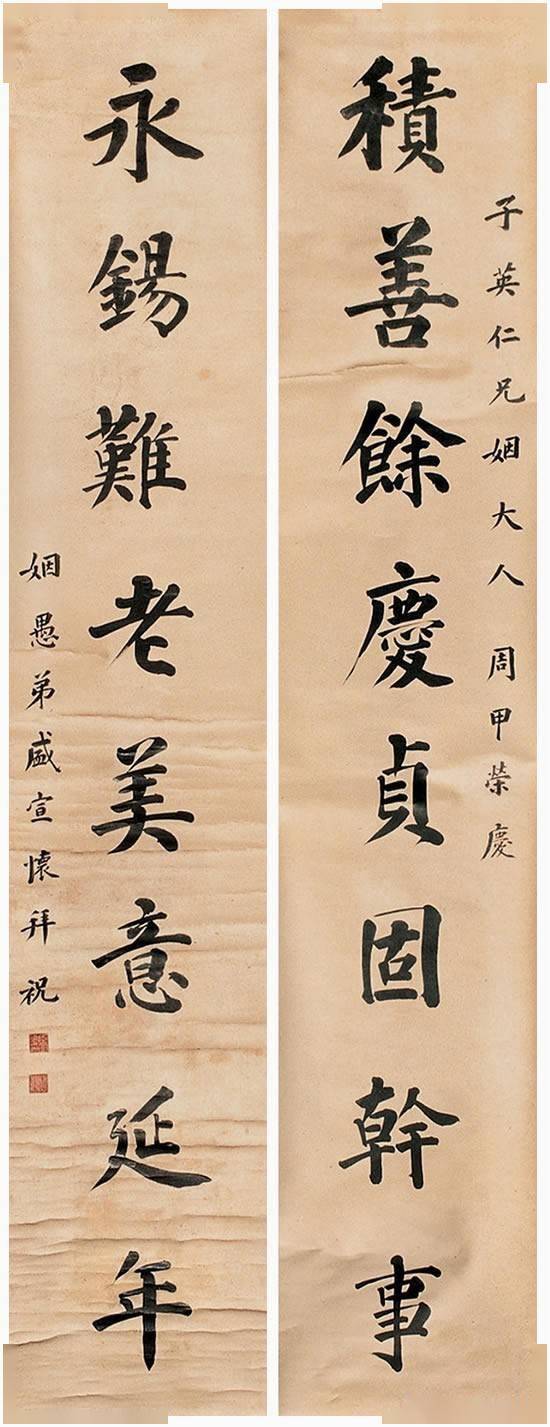 子英仁兄姻大人 周甲榮慶
積善餘慶貞固幹事
永錫難老美意延年
姻愚弟盛宣懷拜祝